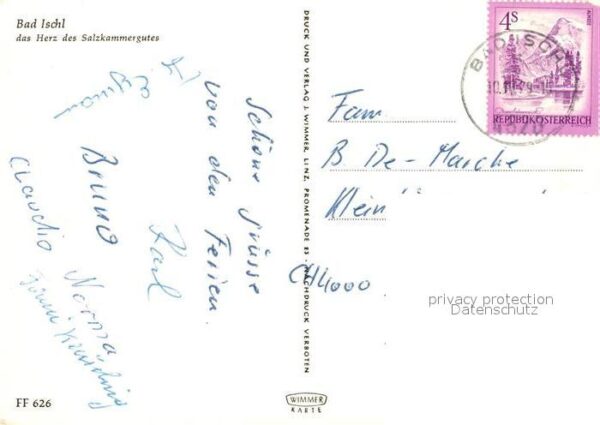 Bad Ischl
das Herz des Salzkammergutes
Schöne Grüsse
von den Ferien
Karl
Bruno
Norma
Claudio
FF 626
DRUCK UND VERLAG J. WIMMER, LINZ, PROMENADE 23 · NACHDRUCK VERBOTEN
WIMMER
KARTE
4 S
ALMSEE
REPUBLIK ÖSTERREICH
BAD ISCHL
4820
Fam
B De-Marche
Klein
CH 4000
privacy protection
Datenschutz